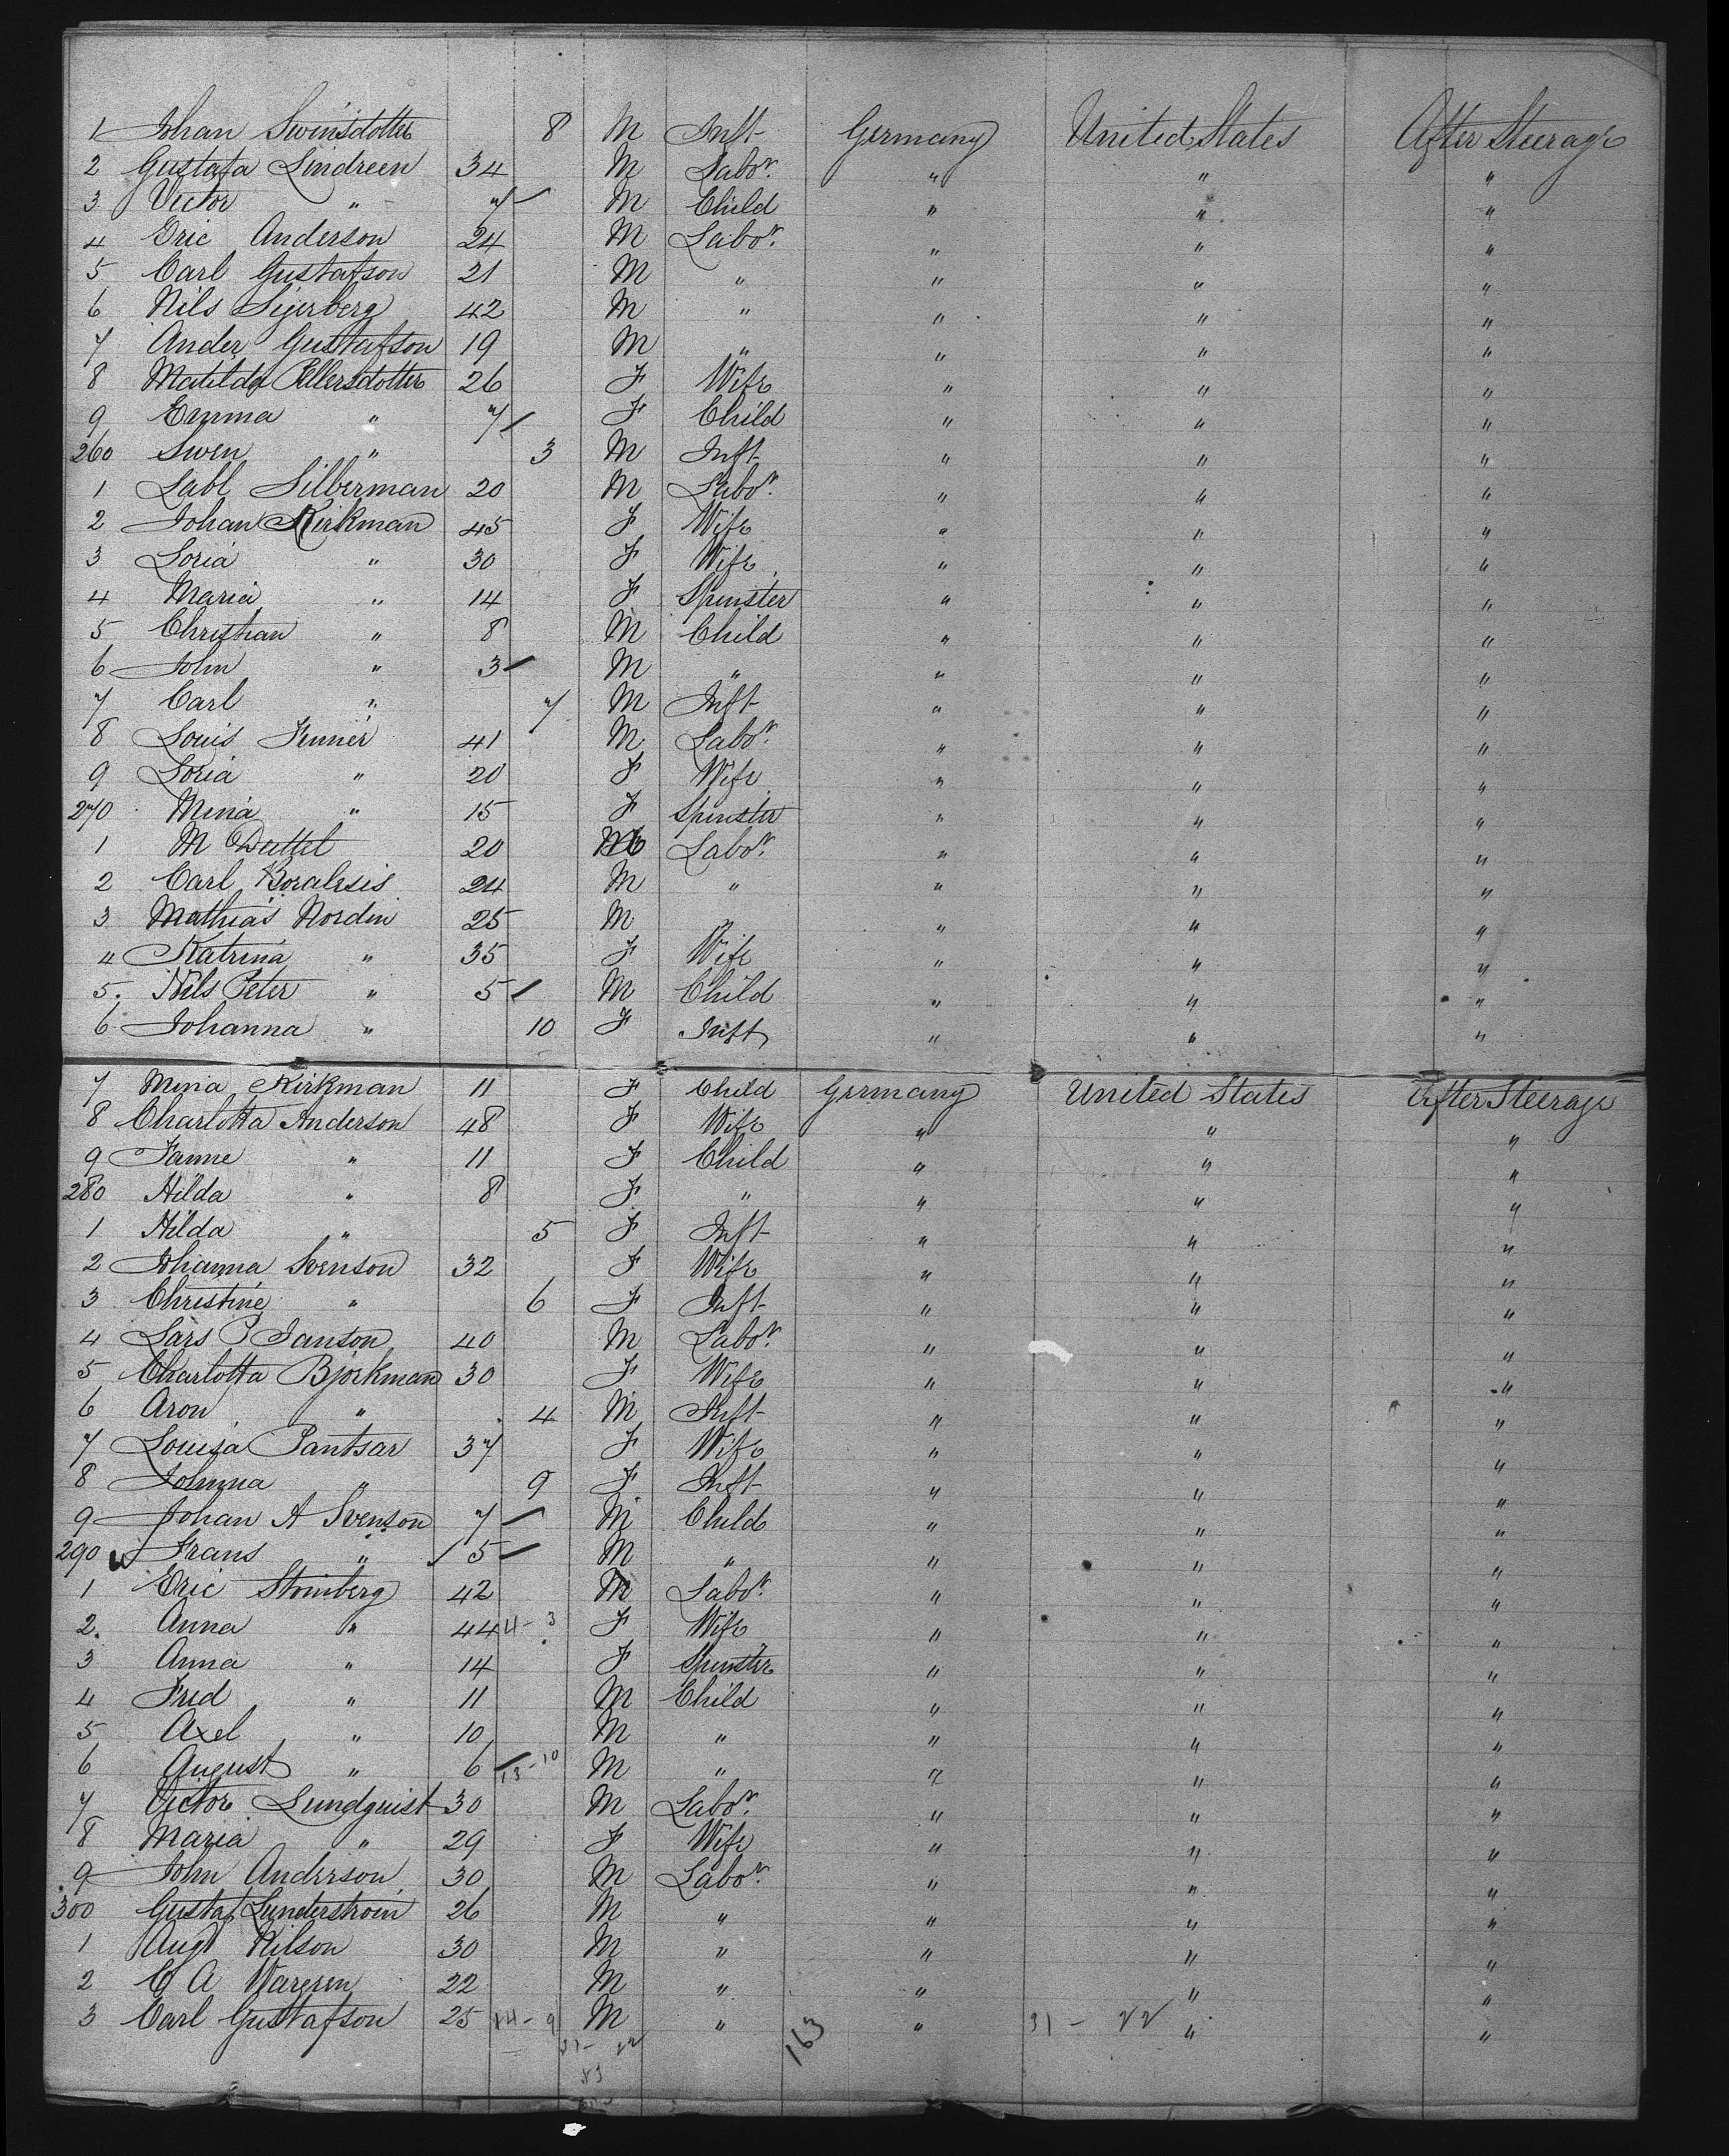 1 Johan Swinsdotter 8 M Inft Germany United States After Steerage
2 Gustafa Lindreen 34 M Labor. " " "
3 Victor " 7 M Child " " "
4 Eric Anderson 24 M Labor. " " "
5 Carl Gustafson 21 M " " " "
6 Nils Sijerberg 42 M " " " "
7 Ander Gustafson 19 M " " " "
8 Matilda Pellersdotter 26 F Wife " " "
9 Emma " 7 F Child " " "
260 Swen " 3 M Inft " " "
1 Labl Silberman 20 M Labor. " " "
2 Johan Kirkman 45 F Wife " " "
3 Soria " 30 F Wife " " "
4 Maria " 14 F Spinster " " "
5 Christian " 8 M Child " " "
6 John " 3 M " " " "
7 Carl " 7 M Inft " " "
8 Louis Funner 41 M Labor. " " "
9 Soria " 20 F Wife " " "
270 Mina " 15 F Spinster " " "
1 M Duttel 20 M Labor. " " "
2 Carl 24 M " " " "
3 Mathias Nordin 25 M " " " "
4 Katrina " 35 F Wife " " "
5. Nils Peter " 5 M Child " " "
6 Johanna " 10 F Inft " " "
7 Mina Kirkman 11 F Child Germany United States After Steerage
8 Charlotta Anderson 48 F Wife " " "
9 Fanne " 11 F Child " " "
280 Hilda " 8 F " " " "
1 Hilda " 5 F Inft " " "
2 Johanna Svenson 32 F Wife " " "
3 Christine " 6 F Inft " " "
4 Lars P Janson 40 M Labor. " " "
5 Charlotta Bjorkman 30 F Wife " " "
6 Aron " 4 M Inft " " "
7 Louisa Pantsar 37 F Wife " " "
8 Johnna " 9 F Inft " " "
9 Johan A Svenson 7 M Child " " "
290 Frans " 5 M " " " "
1 Eric Stromberg 42 M Labor. " " "
2. Anna " 44 4-3 F Wife " " "
3 Anna " 14 F Spinster " " "
4 Fred " 11 M Child " " "
5 Axel " 10 M " " " "
6 August " 6 13-10 M " " " "
7 Victor Lundquist 30 M Labor. " " "
8 Maria " 29 F Wife " " "
9 John Anderson 30 M Labor. " " "
300 Gustaf Lunderstrom 26 M " " " "
1 Augt Nilson 30 M " " " "
2 C A Wargren 22 M " " " "
3 Carl Gustafson 25 14-9 M " " 31-22 " "
31-22 163